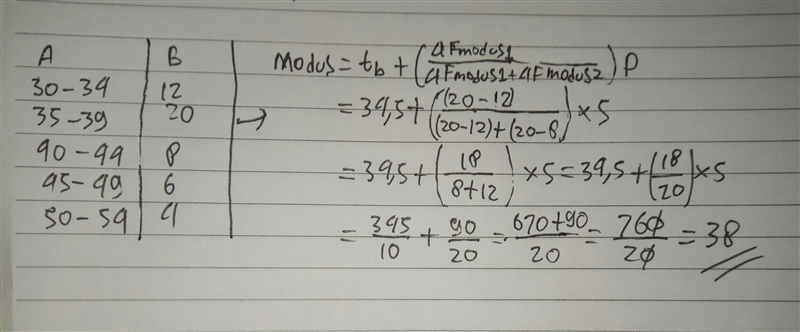 A | B
30-34 | 12
35-39 | 20 →
40-44 | 8
45-49 | 6
50-54 | 4
Modus = tb + (ΔFmodus1 / ΔFmodus1 + ΔFmodus2) P
= 34,5 + ((20-12) / (20-12) + (20-8)) × 5
= 34,5 + (18 / 8+12) × 5 = 34,5 + (18 / 20) × 5
= 345/10 + 90/20 = 670+90/20 = 760/20 = 38